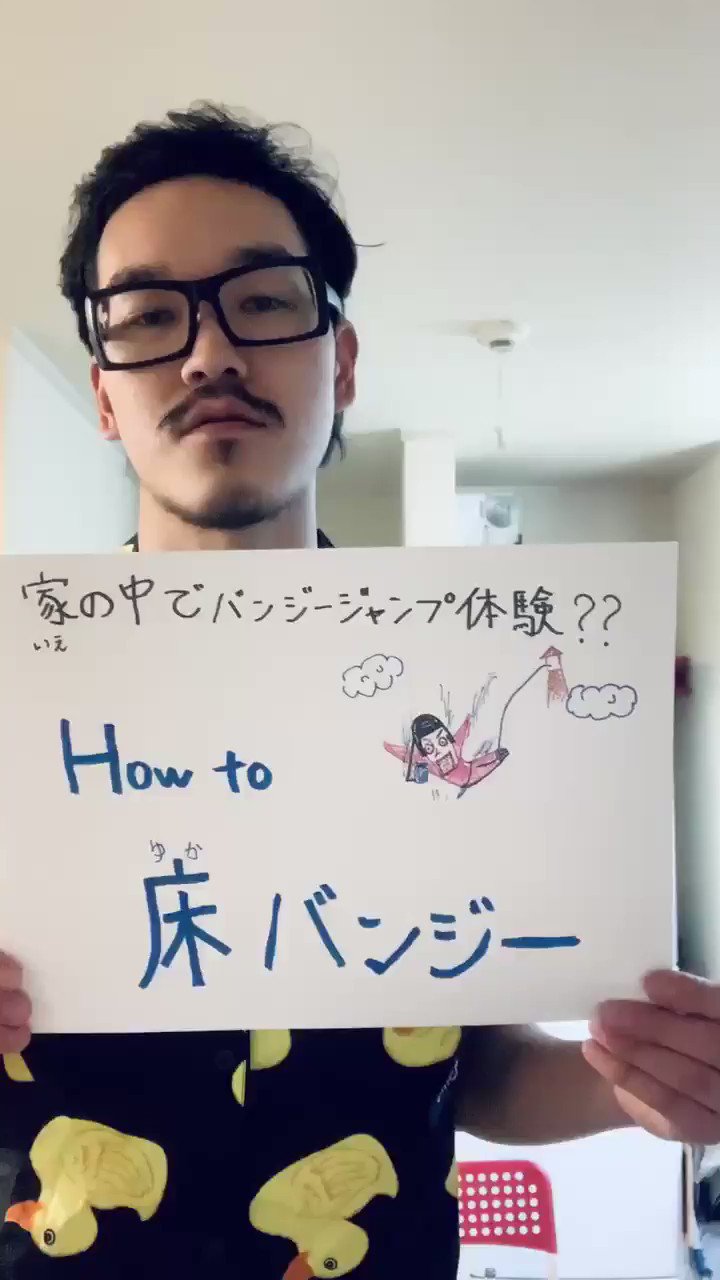 家の中でバンジージャンプ体験??
いえ
How to
ゆか
床バンジー